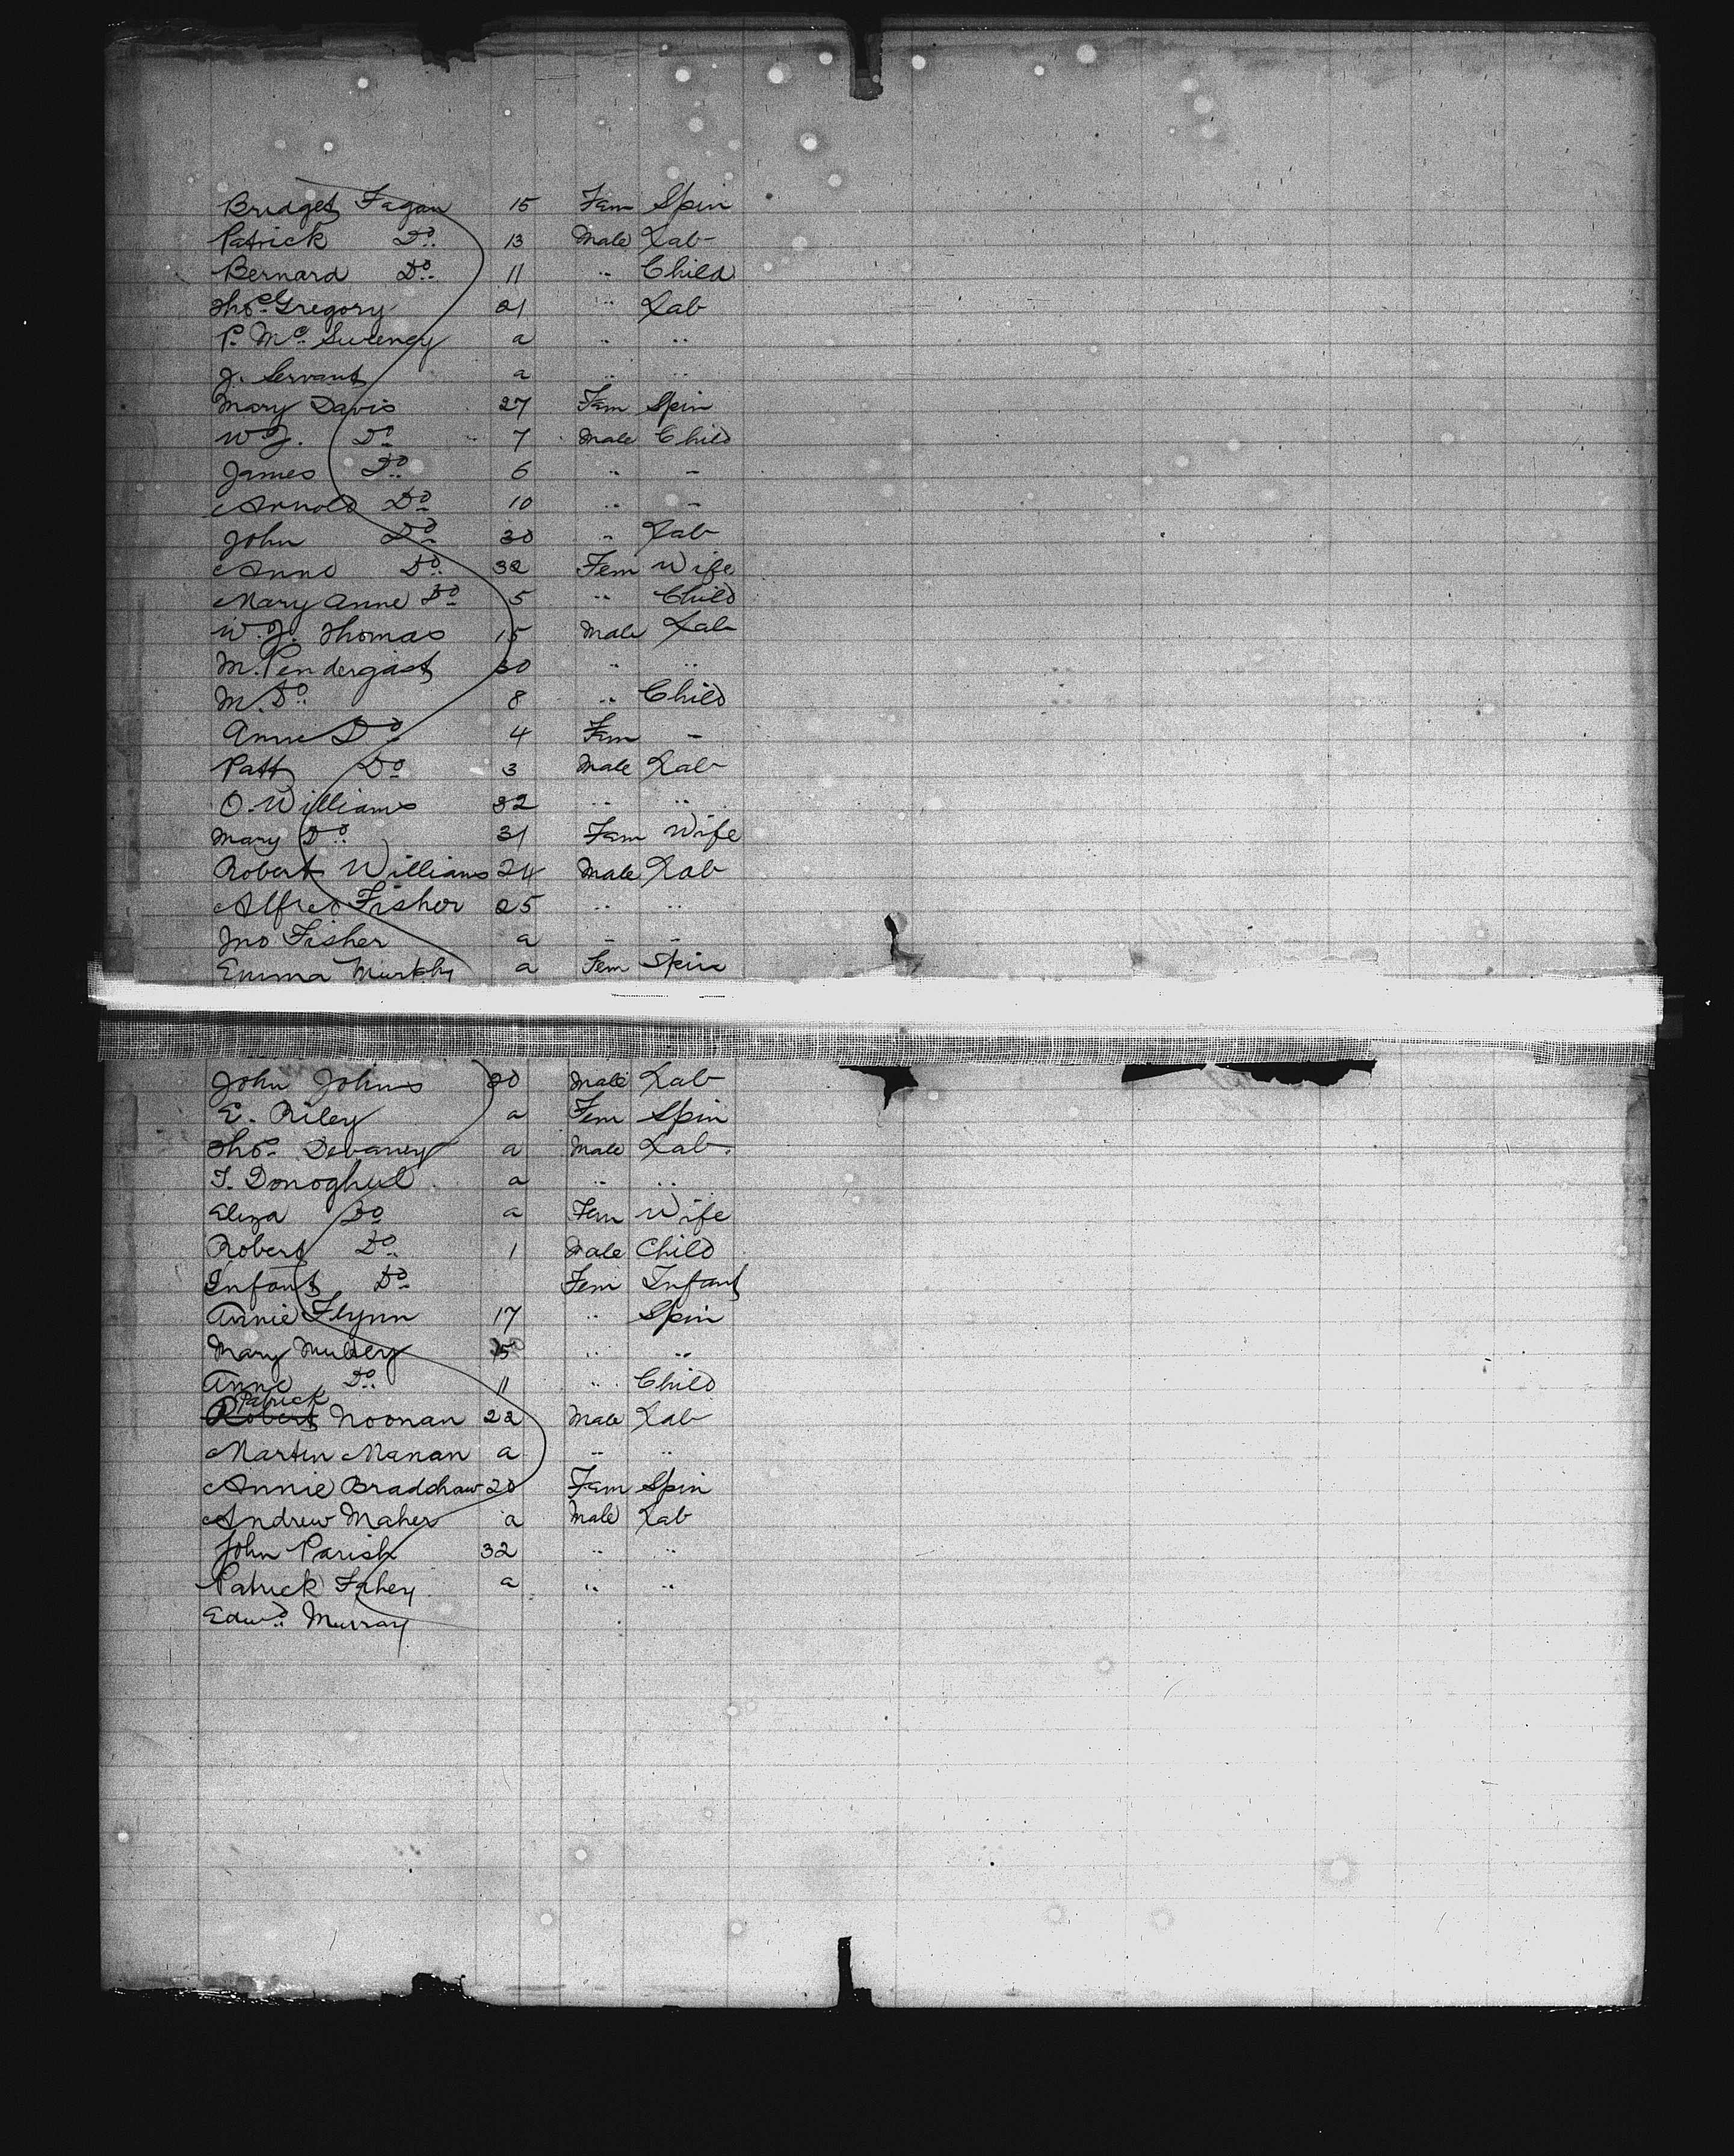 Bridget Fagan 15 Fem Spin
Patrick Do 13 Male Lab
Bernard Do 11 " Child
Thos Gregory 21 " Lab
P. Mc Sweeney a " "
J. Servant a " "
Mary Davis 27 Fem Spin
W J. Do 7 Male Child
James Do 6 " "
Arnold Do 10 " "
John Do 30 " Lab
Anne Do 32 Fem Wife
Mary Anne Do 5 " Child
W. J. Thomas 15 Male Lab
M. Pendergast 30 " "
M. Do 8 " Child
Anne Do 4 Fem "
Patt Do 3 Male Lab
O. Williams 32 " "
Mary Do 31 Fem Wife
Robert Williams 24 Male Lab
Alfred Fisher 25 " "
Jno Fisher a " "
Emma Murphy a Fem Spin
John Johns 20 Male Lab
E. Riley a Fem Spin
Thos Devaney a Male Lab
T. Donoghue a " "
Eliza Do a Fem Wife
Robert Do 1 Male Child
Infant Do Fem Infant
Annie Flynn 17 " Spin
Mary " "
Anne Do 11 " Child
Patrick
Robert Noonan 22 Male Lab
Martin Manan a " "
Annie Bradshaw 20 Fem Spin
Andrew Maher a Male Lab
John Parish 32 " "
Patrick Fahey a " "
Edwd Murray